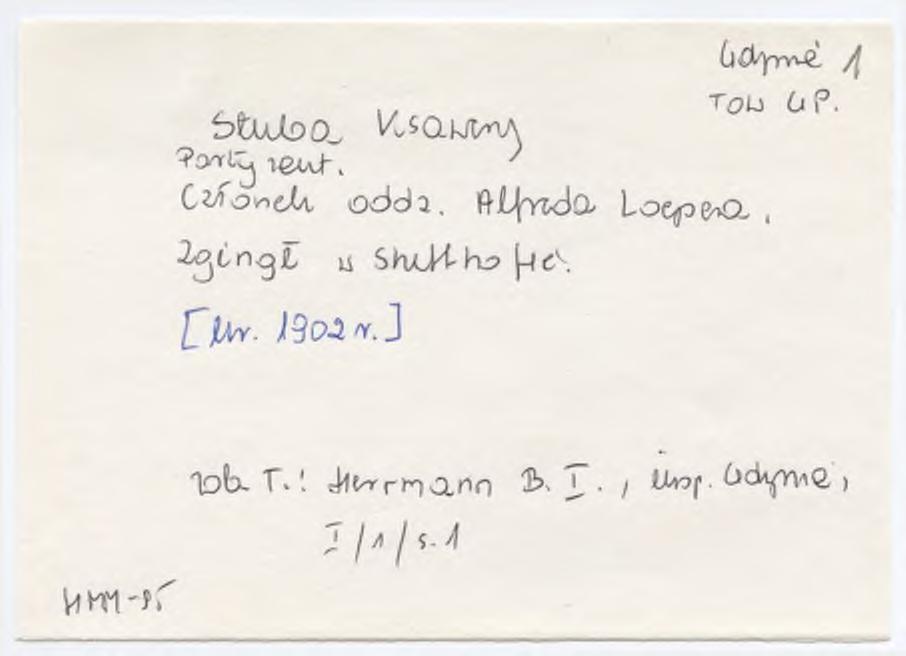 Gdynia 1
TOW GP.
Stuba Ksawery
Partyzant.
Członek oddz. Alfreda Loepera.
Zginął w Stutthofie.
[ur. 1902 r.]
zob. T.: Herrmann B. I., insp. Gdynia,
I/1/s.1
HMM-95